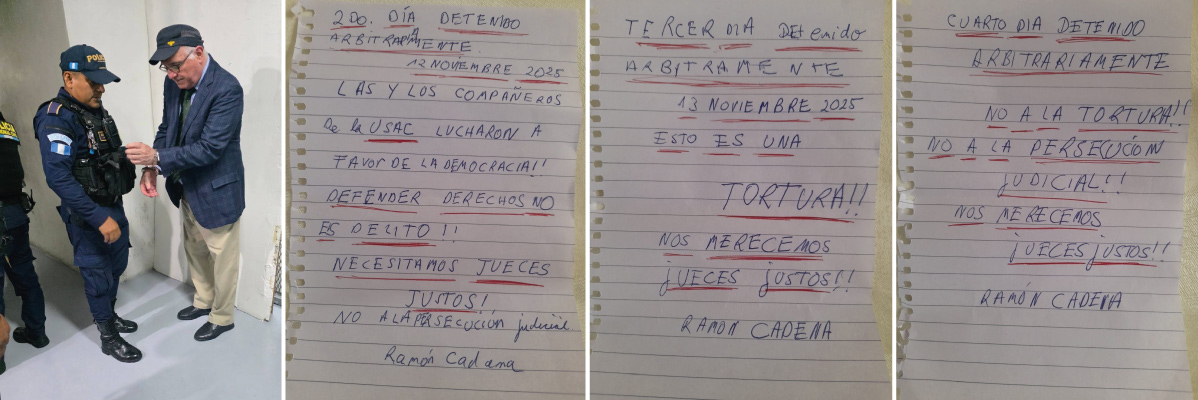 POLICIA
2DO. DÍA DETENIDO
ARBITRARIAMENTE.
12 NOVIEMBRE 2025
LAS Y LOS COMPAÑEROS
De la USAC LUCHARON A
FAVOR DE LA DEMOCRACIA!!
DEFENDER DERECHOS NO
ES DELITO!!
NECESITAMOS JUECES
JUSTOS!
NO A LA PERSECUCIÓN judicial
Ramón Cadena
TERCER DIA DEtenido
ARBITRAMENTE
13 NOVIEMBRE 2025
ESTO ES UNA
TORTURA!!
NOS MERECEMOS
JUECES JUSTOS!!
RAMÓN CADENA
CUARTO DIA DETENIDO
ARBITRARIAMENTE
NO A LA TORTURA!!
NO A LA PERSECUCIÓN
JUDICIAL!!
NOS MERECEMOS
JUECES JUSTOS!!
RAMÓN CADENA